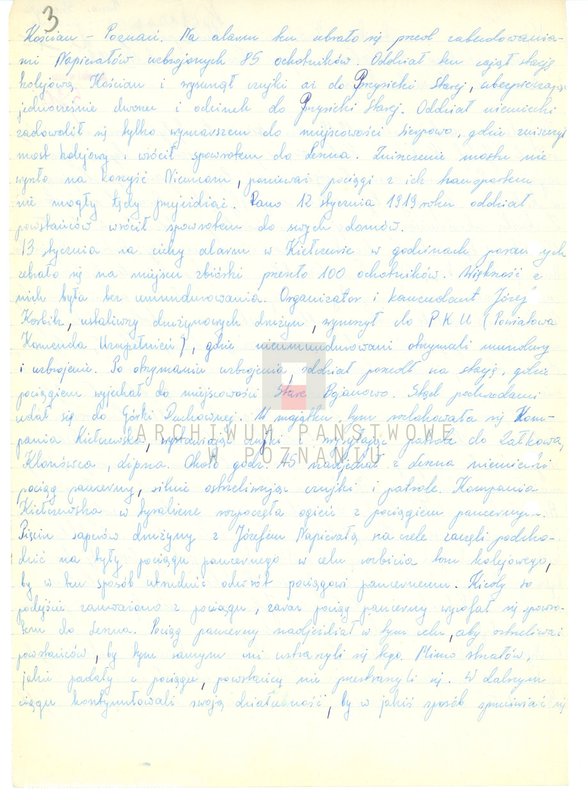 3
Kościan – Poznań. Na alarm ten zebrało się przed zabudowania-
mi Napierałów uzbrojonych 85 ochotników. Oddział ten zajął stację
kolejową Kościan i wysunął czujki aż do Przysieki Starej, ubezpieczając
jednocześnie dworzec i odcinek do Przysieki Starej. Oddział niemiecki
zadowolił się tylko wymarszem do miejscowości Sierpowo, gdzie zniszczył
most kolejowy i wrócił spowrotem do Leszna. Zniszczenie mostu nie
wyszło na korzyść Niemcom, ponieważ pociągi z ich transportem
nie mogły tędy przejeżdżać. Rano 12 stycznia 1919 roku oddział
powstańców wrócił spowrotem do swych domów.
13 stycznia na cichy alarm w Kiełczewie w godzinach porannych
zebrało się na miejscu zbiórki przeszło 100 ochotników. Większość z
nich była bez umundurowania. Organizator i komendant Józef
ustaliwszy drużynowych drużyn, wyruszył do P K U (Powiatowa
Komenda Uzupełnień), gdzie nieumundurowani otrzymali mundury
i uzbrojenie. Po otrzymaniu uzbrojenia, oddział poszedł na stację, gdzie
pociągiem wyjechał do miejscowości Stare Bojanowo. Stąd podwodami
udał się do Górki Duchownej. W majątku tym rozlokowała się Kom-
pania Kiełczewska, wystawiając czujki i wysyłając patrole do Żakowa,
Klonówca, Lipna. Około godz. 15 nadjechał z Leszna niemiecki
pociąg pancerny, silnie ostrzeliwując czujki i patrole. Kompania
Kiełczewska w tyralierze rozpoczęła ogień z pociągiem pancernym.
Pięciu saperów drużyny z Józefem Napierałą na czele zaczęli podcho-
dzić na tyły pociągu pancernego w celu rozbicia toru kolejowego,
by w ten sposób utrudnić odwrót pociągowi pancernemu. Kiedy to
podejście zauważono z pociągu, zaraz pociąg pancerny wycofał się spowro-
tem do Leszna. Pociąg pancerny nadjeżdżał w tym celu, aby ostrzeliwać
powstańców, by tym samym oni ustraszyli się tego. Mimo strzałów,
jakie padały z pociągu, powstańcy nie przestraszyli się. W dalszym
ciągu kontynuowali swoją działalność, by w jakiś sposób sprzeciwiać się
ARCHIWUM PAŃSTWOWE
W POZNANIU